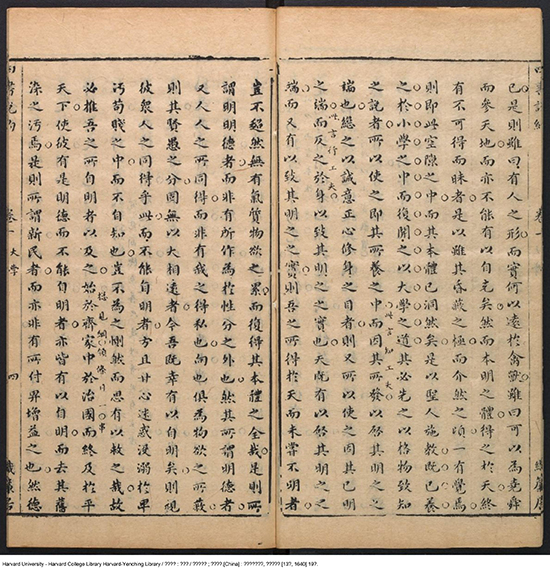 已是則雖曰有人之形而實何以遠於禽獸雖曰可以為堯舜
而參天地而亦不能有以自充矣然而本明之體得之於天終
有不可得而昧者是以雖其昏蔽之極而介然之頃一有覺焉
則即此空隙之中而其本體已洞然矣是以聖人施教既已養
之於小學之中而後開之以大學之道其必先之以格物致知
此言知工夫
之說者所以使之即其所養之中而因其所發以啟其明之之
端也繼之以誠意正心修身之目者則又所以使之因其已明
此言行工夫
之端而反之於身以致其明之之實也夫既有以啟其明之之
端而又有以致其明之之實則吾之所得於天而未嘗不明者
豈不超然無有氣質物欲之累而復得其本體之全哉是則所
謂明明德者而非有所作為於性分之外也然其所謂明德者
又人人之所同得而非有我之得私也向也俱為物欲之所蔽
則其賢愚之分固無以大相遠者今吾既幸有以自明矣則視
彼眾人之同得乎此而不能自明者方且甘心迷惑沒溺於卑
污苟賤之中而不自知也豈不為之惻然而思有以救之哉故
總見綱領條目一事
必推吾之所自明者以及之始於齊家中於治國而終及於平
天下使彼有是明德而不能自明者亦皆有以自明而去其舊
染之污焉是則所謂新民者而亦非有所付畀增益之也然德
四書說約 卷一 大學 四 織簾居
Harvard University - Harvard College Library Harvard-Yenching Library / ???? : ??? / ????? ; ????.[China] : ???????, ????? [137, 1640] 197.